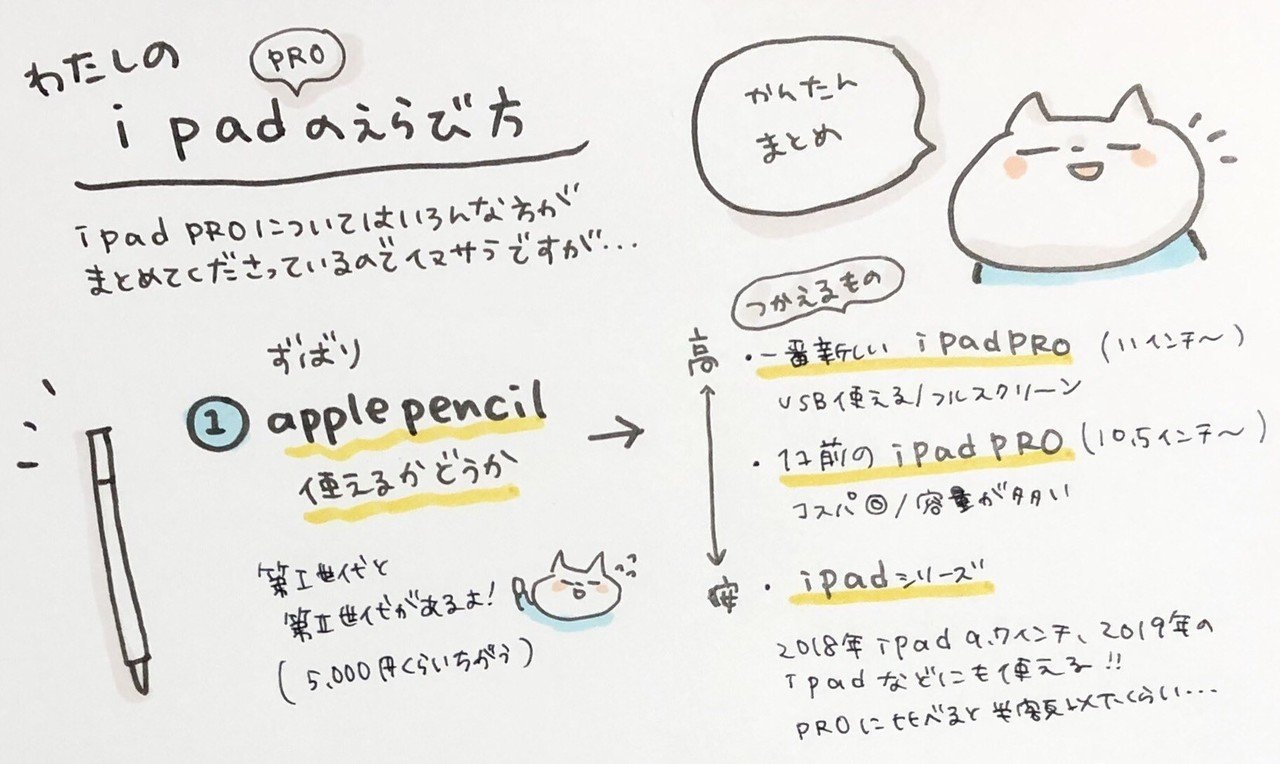 わたしの
PRO
ipadのえらび方
かんたん
まとめ
ipad PROについてはいろんな方が
まとめてくださっているのでイマサラですが...
ずばり
① apple pencil
使えるかどうか
→
第Ⅰ世代と
第Ⅱ世代があるよ!
(5,000円くらいちがう)
つかえるもの
高
・一番新しい ipad PRO (11インチ〜)
USB使える/フルスクリーン
・1コ前の ipad PRO (10.5インチ〜)
コスパ◎/容量が多い
安
・ipadシリーズ
2018年 ipad 9.7インチ、2019年の
ipadなどにも使える!!
PROに比べると半額以下くらい...